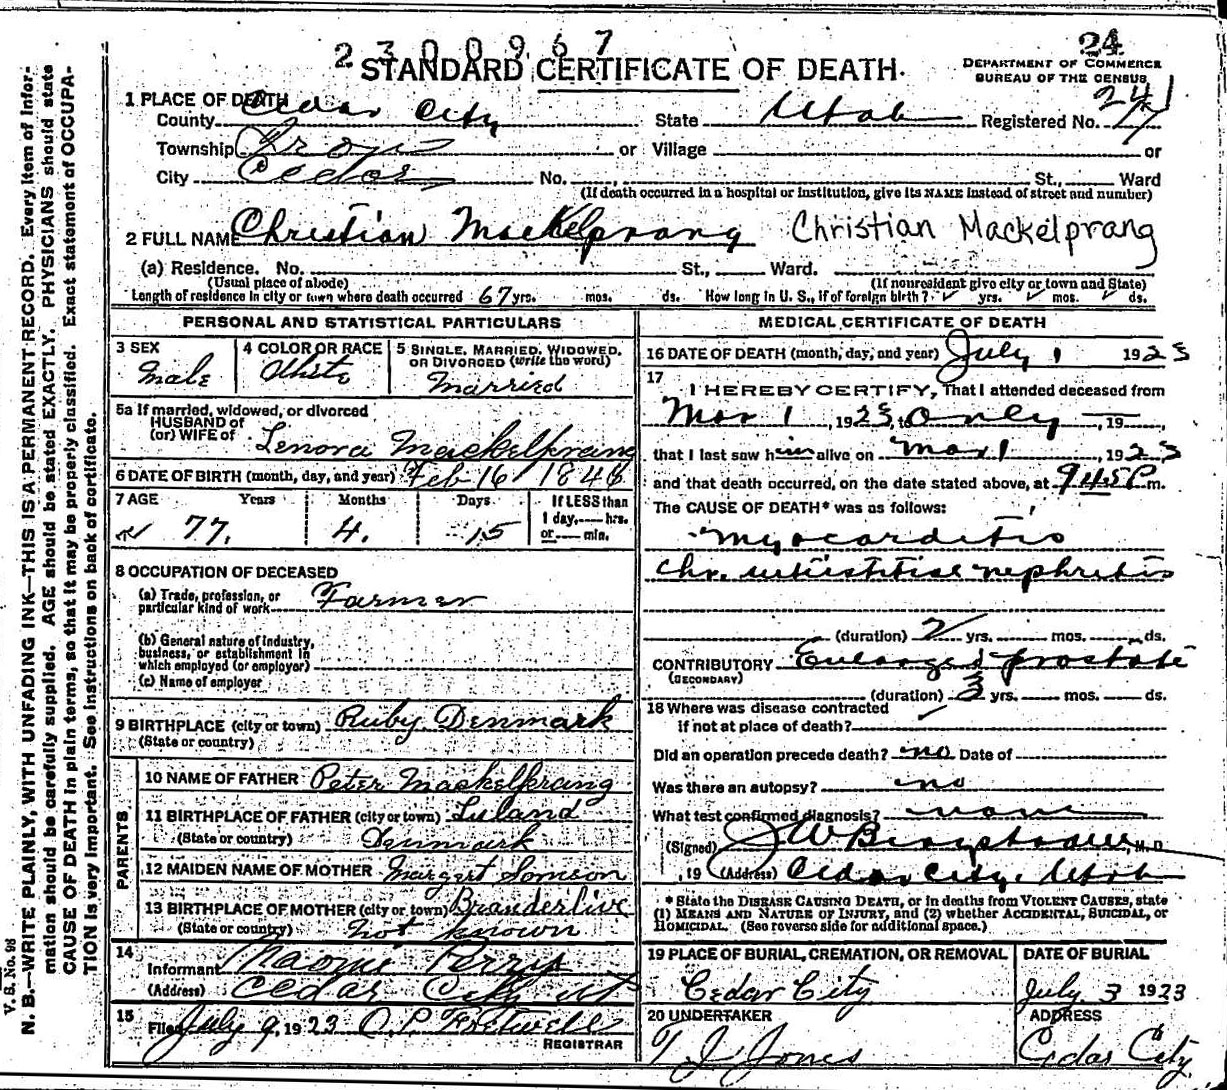 2300967
24
STANDARD CERTIFICATE OF DEATH.
DEPARTMENT OF COMMERCE
BUREAU OF THE CENSUS
241
1 PLACE OF DEATH
County Cedar City State Utah Registered No. 77
Township Iron or Village or
City Cedar No. , St., Ward
(If death occurred in a hospital or institution, give its NAME instead of street and number)
2 FULL NAME Christian Mackelprang Christian Mackelprang
(a) Residence. No. St., Ward.
(Usual place of abode) (If nonresident give city or town and State)
Length of residence in city or town where death occurred 67 yrs. mos. ds. How long in U. S., if of foreign birth? yrs. mos. ds.
PERSONAL AND STATISTICAL PARTICULARS
3 SEX 4 COLOR OR RACE 5 SINGLE, MARRIED, WIDOWED,
OR DIVORCED (write the word)
Male White Married
5a If married, widowed, or divorced
HUSBAND of
(or) WIFE of Lenora Mackelprang
6 DATE OF BIRTH (month, day, and year) Feb 16 1846
7 AGE Years Months Days If LESS than
1 day, hrs.
77. 4. 15 or min.
8 OCCUPATION OF DECEASED
(a) Trade, profession, or
particular kind of work Farmer
(b) General nature of industry,
business, or establishment in
which employed (or employer)
(c) Name of employer
9 BIRTHPLACE (city or town) Ruby Denmark
(State or country)
PARENTS
10 NAME OF FATHER Peter Mackelprang
11 BIRTHPLACE OF FATHER (city or town) Luland
(State or country) Denmark
12 MAIDEN NAME OF MOTHER Margert
13 BIRTHPLACE OF MOTHER (city or town)
(State or country) not known
14
Informant Naomi Perry
(Address) Cedar City Ut
15
Filed July 9, 1923 O.P. Fretwell
REGISTRAR
MEDICAL CERTIFICATE OF DEATH
16 DATE OF DEATH (month, day, and year) July 1 1923
17
I HEREBY CERTIFY, That I attended deceased from
Mar 1, 1923, to only, 19
that I last saw him alive on Mar 1, 1923
and that death occurred, on the date stated above, at 9 45 P m.
The CAUSE OF DEATH* was as follows:
Myocarditis
Chr. interstitial nephritis
(duration) 2 yrs. mos. ds.
CONTRIBUTORY Enlarged prostate
(SECONDARY)
(duration) yrs. mos. ds.
18 Where was disease contracted
if not at place of death?
Did an operation precede death? no Date of
Was there an autopsy? no
What test confirmed diagnosis? none
(Signed) J W Bergstrom, M. D.
, 19 (Address) Cedar City, Utah
* State the DISEASE CAUSING DEATH, or in deaths from VIOLENT CAUSES, state
(1) MEANS AND NATURE OF INJURY, and (2) whether ACCIDENTAL, SUICIDAL, or
HOMICIDAL. (See reverse side for additional space.)
19 PLACE OF BURIAL, CREMATION, OR REMOVAL DATE OF BURIAL
Cedar City July 3 1923
20 UNDERTAKER ADDRESS
T J Jones Cedar City
V. S. No. 98
N. B.—WRITE PLAINLY, WITH UNFADING INK—THIS IS A PERMANENT RECORD. Every item of infor-
mation should be carefully supplied. AGE should be stated EXACTLY. PHYSICIANS should state
CAUSE OF DEATH in plain terms, so that it may be properly classified. Exact statement of OCCUPA-
TION is very important. See instructions on back of certificate.